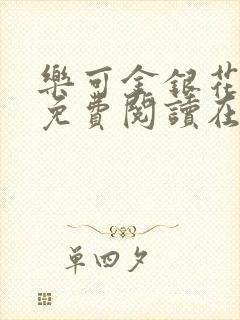 樂可金銀花
免費閱讀在
單四夕